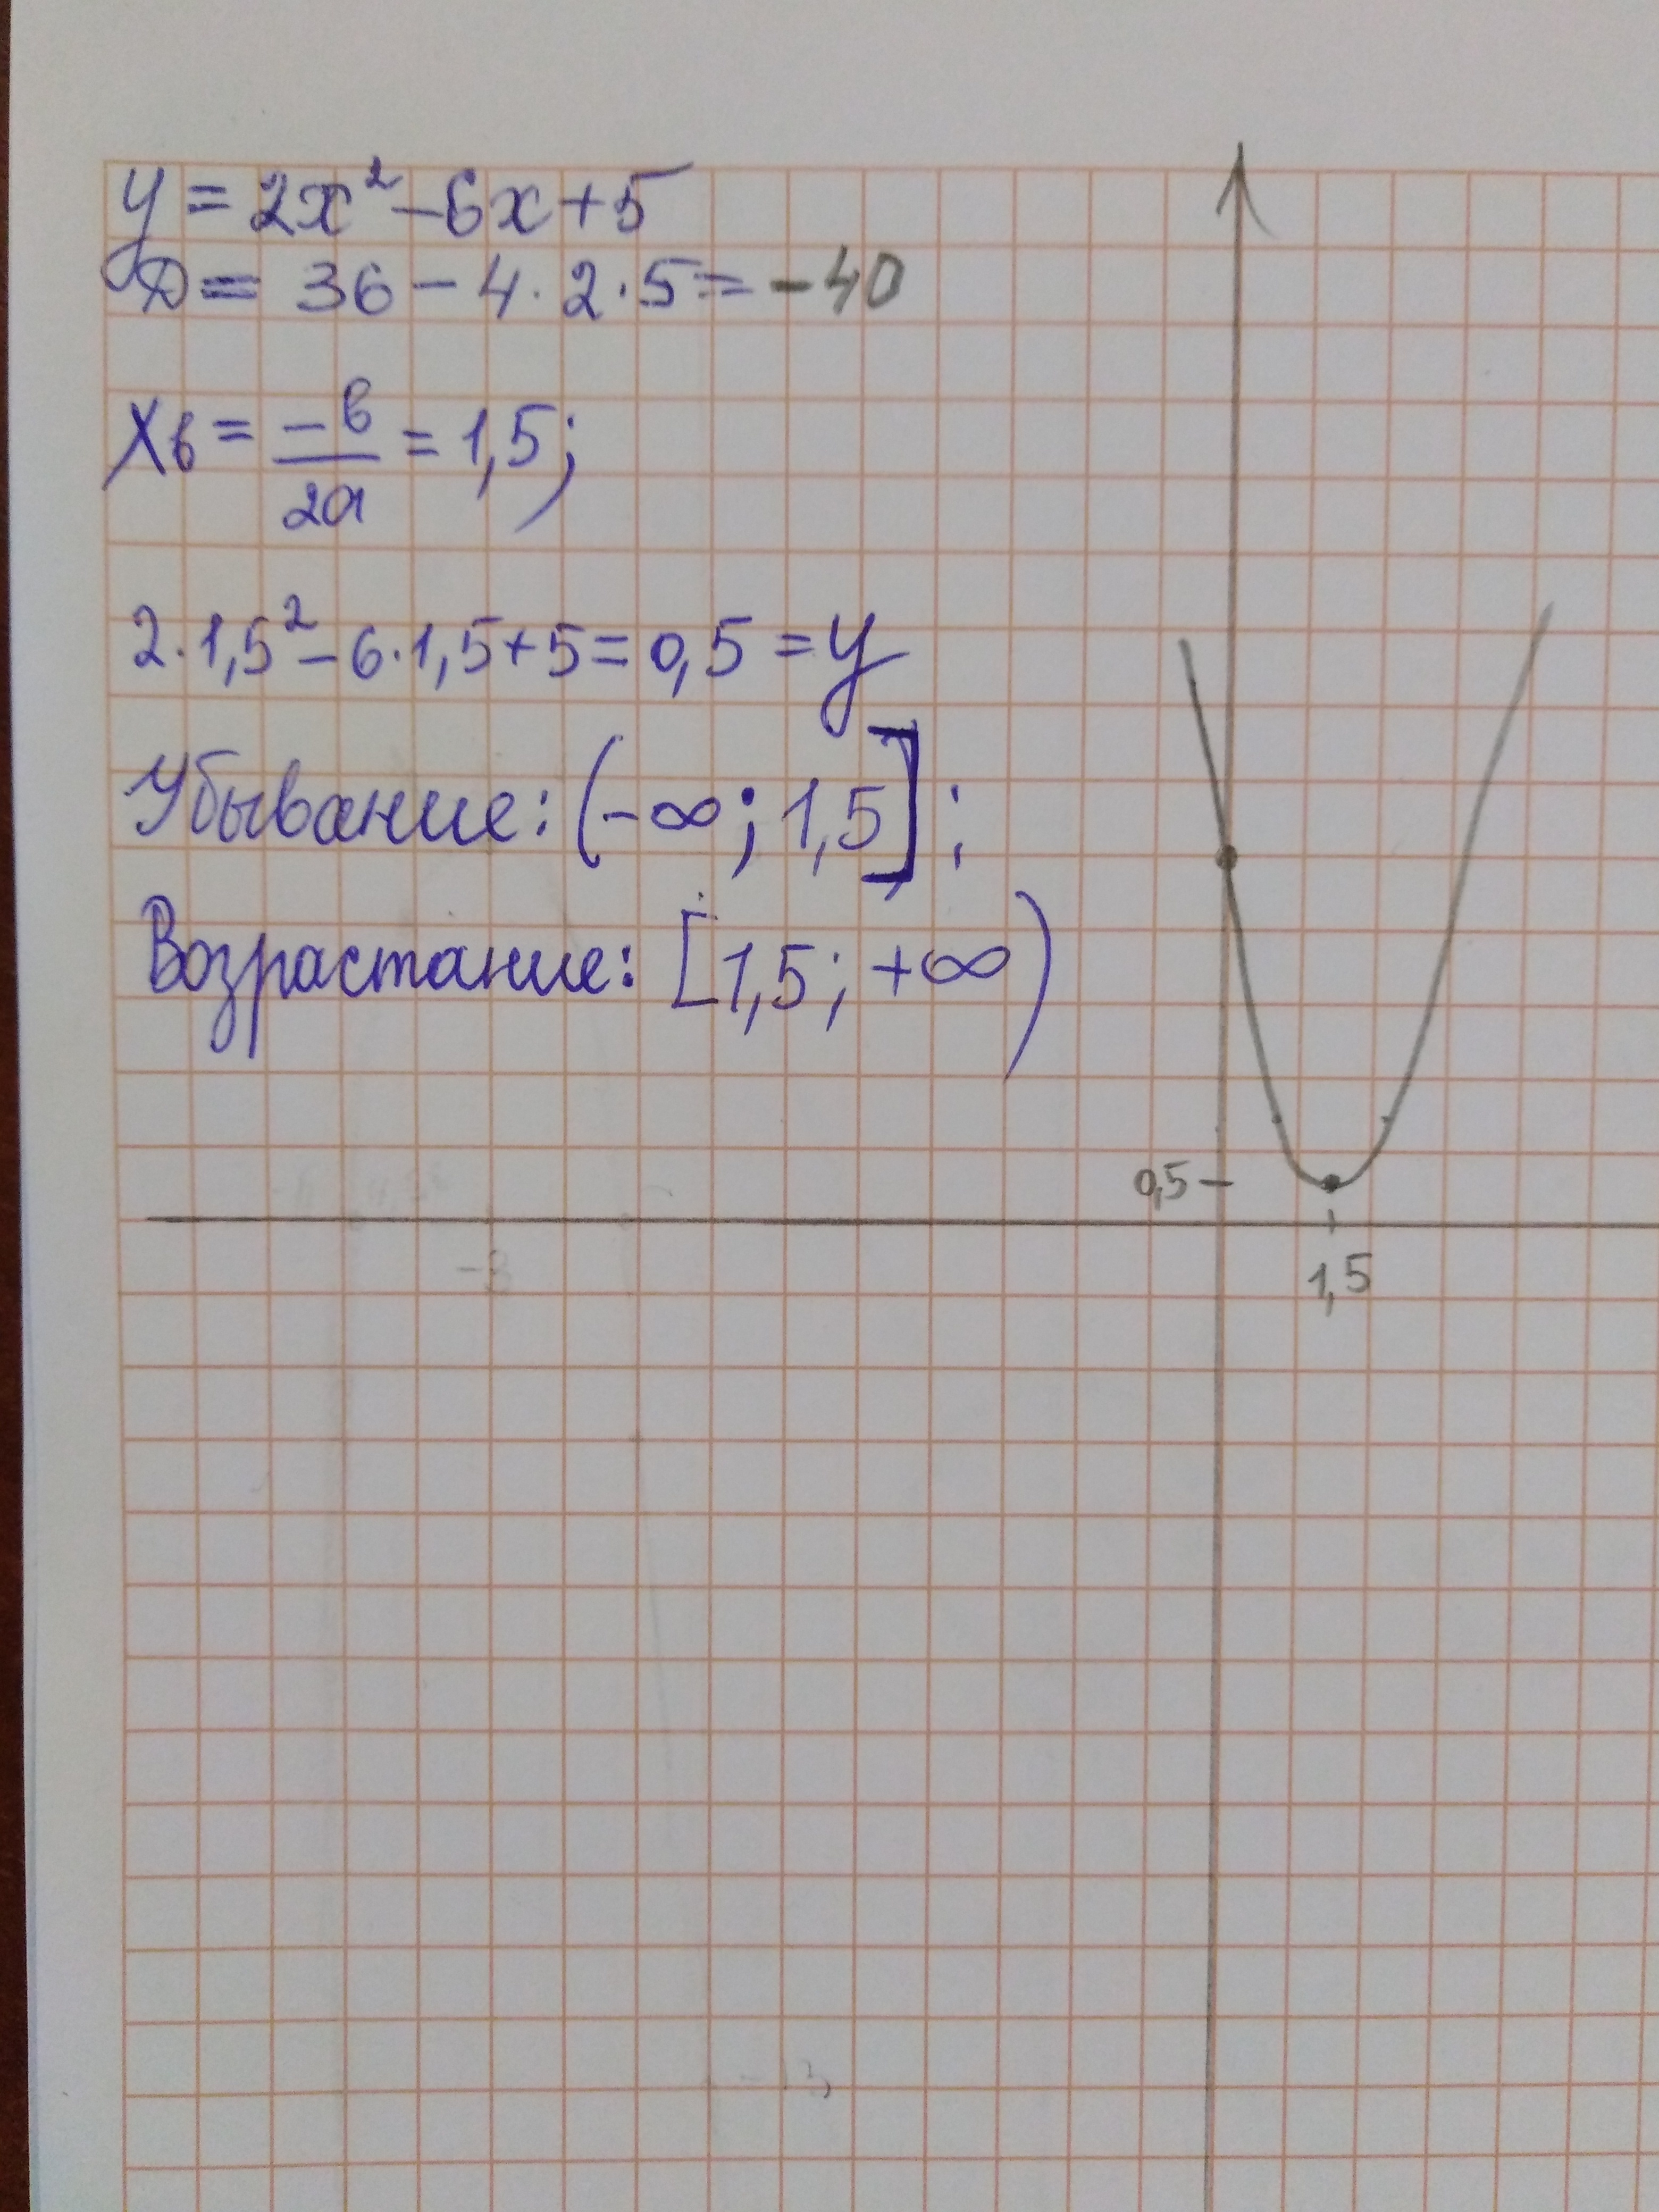 y = 2x² - 6x + 5
D = 36 - 4 · 2 · 5 = -40
Xв = -в/2a = 1,5;
2 · 1,5² - 6 · 1,5 + 5 = 0,5 = y
Убывание: (-∞; 1,5];
Возрастание: [1,5; +∞)
0,5
1,5
-3